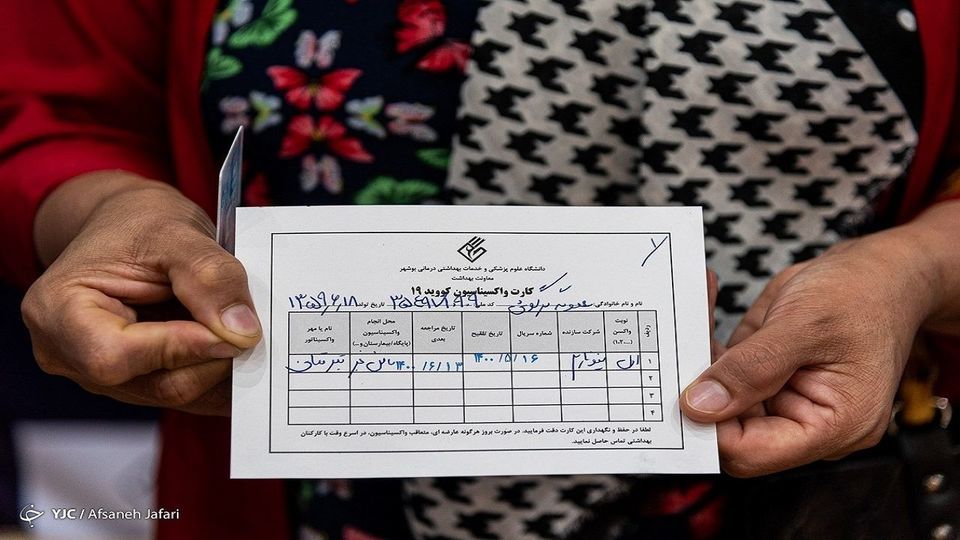 دانشگاه علوم پزشکی و خدمات بهداشتی درمانی بوشهر
معاونت بهداشت
کارت واکسیناسیون کووید ۱۹
نام و نام خانوادگی: کد ملی: تاریخ تولد: ۱۳۵۹/۶/۱۸
ردیف نوبت واکسن (۱،۲،...) شرکت سازنده شماره سریال تاریخ تلقیح تاریخ مراجعه بعدی محل انجام واکسیناسیون (پایگاه/بیمارستان و...) نام یا مهر واکسیناتور
۱ اول سینوفارم ۱۴۰۰/۵/۱۶ ۱۴۰۰/۶/۱۳
۲
۳
۴
لطفا در حفظ و نگهداری این کارت دقت فرمایید. در صورت بروز هرگونه عارضه ای، متعاقب واکسیناسیون، در اسرع وقت با کارکنان
بهداشتی تماس حاصل نمایید.
YJC / Afsaneh Jafari